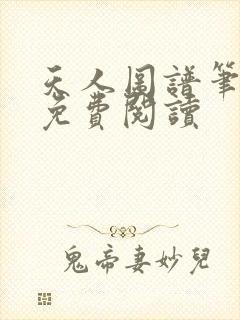 天人图譜筆
免費閱讀
鬼帝妻妙兒